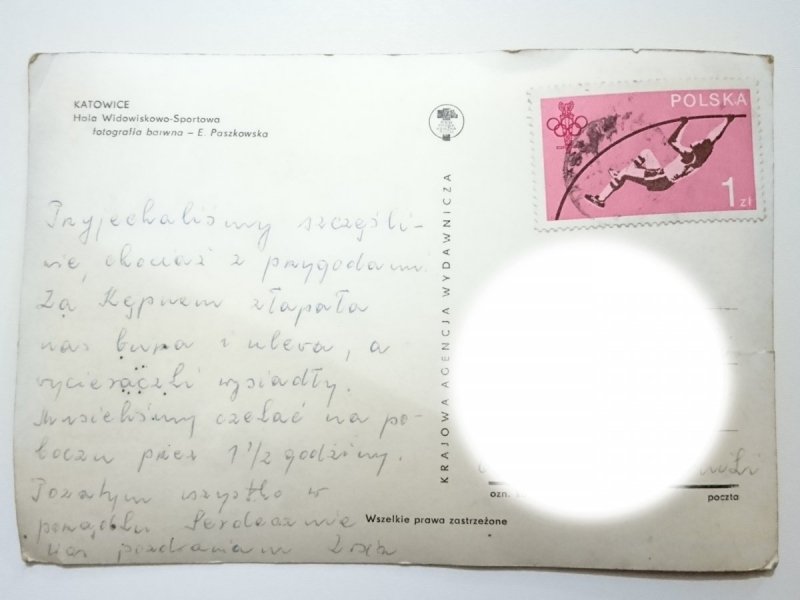 KATOWICE
Hala Widowiskowo-Sportowa
fotografia barwna – E. Paszkowska
POLSKA
1 zł
KRAJOWA AGENCJA WYDAWNICZA
Przyjechaliśmy szczęśli-
wie, chociaż z przygodam
Za Kępnem złapała
nas burza i ulewa, a
wycieraczki wysiadły.
Musieliśmy czekać na po-
boczu przez 1 1/2 godziny.
Pozatym wszystko w
porządku Serdecznie
Was pozdrawiam
ozn.
poczta
Wszelkie prawa zastrzeżone